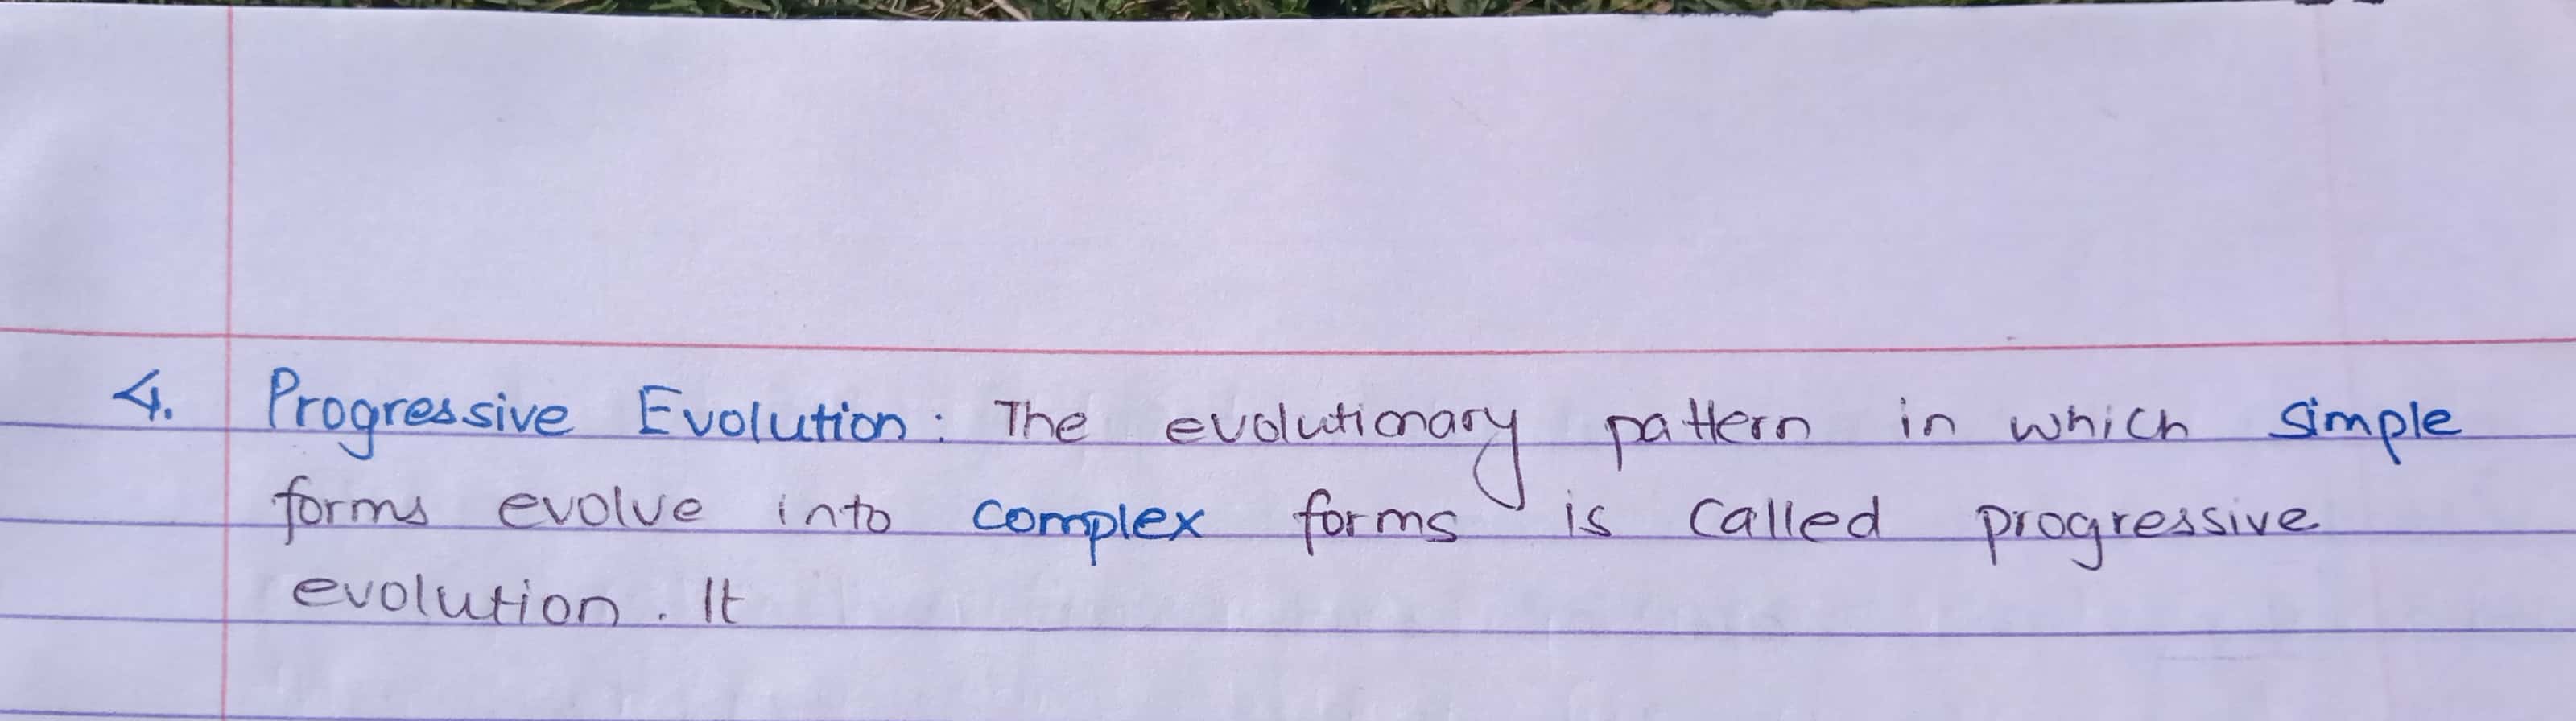 4. Progressive Evolution: The evolutionary pattern in which simple
forms evolve into complex forms is called progressive
evolution. It